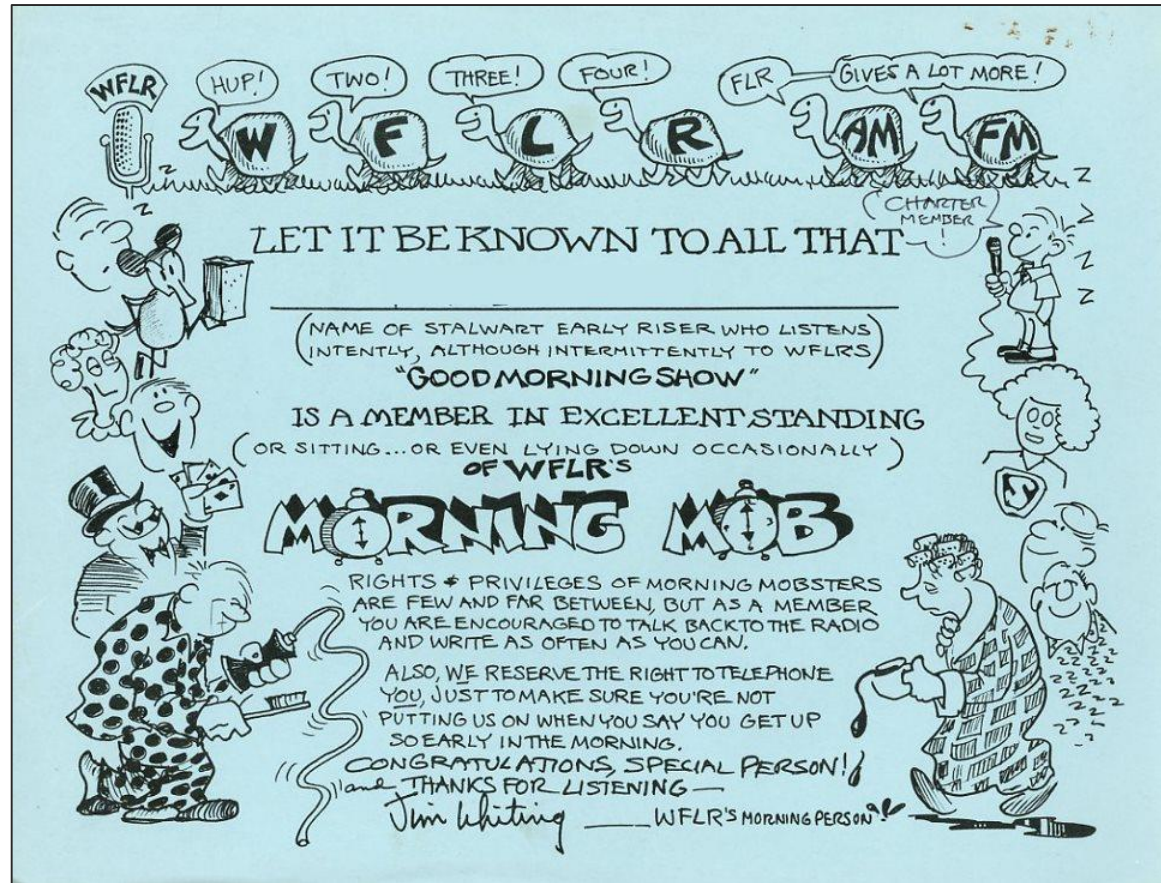 WFLR
HUP!
TWO!
THREE!
FOUR!
FLR
GIVES A LOT MORE!
W F L R AM FM
Z
Z
CHARTER
MEMBER
!
LET IT BE KNOWN TO ALL THAT
(NAME OF STALWART EARLY RISER WHO LISTENS
INTENTLY, ALTHOUGH INTERMITTENTLY TO WFLR'S)
"GOOD MORNING SHOW"
IS A MEMBER IN EXCELLENT STANDING
(OR SITTING... OR EVEN LYING DOWN OCCASIONALLY)
OF WFLR'S
MORNING MOB
RIGHTS & PRIVILEGES OF MORNING MOBSTERS
ARE FEW AND FAR BETWEEN, BUT AS A MEMBER
YOU ARE ENCOURAGED TO TALK BACK TO THE RADIO
AND WRITE AS OFTEN AS YOU CAN.
ALSO, WE RESERVE THE RIGHT TO TELEPHONE
YOU, JUST TO MAKE SURE YOU'RE NOT
PUTTING US ON WHEN YOU SAY YOU GET UP
SO EARLY IN THE MORNING.
CONGRATULATIONS, SPECIAL PERSON!
and THANKS FOR LISTENING—
Jim Whiting ___ WFLR'S MORNING PERSON